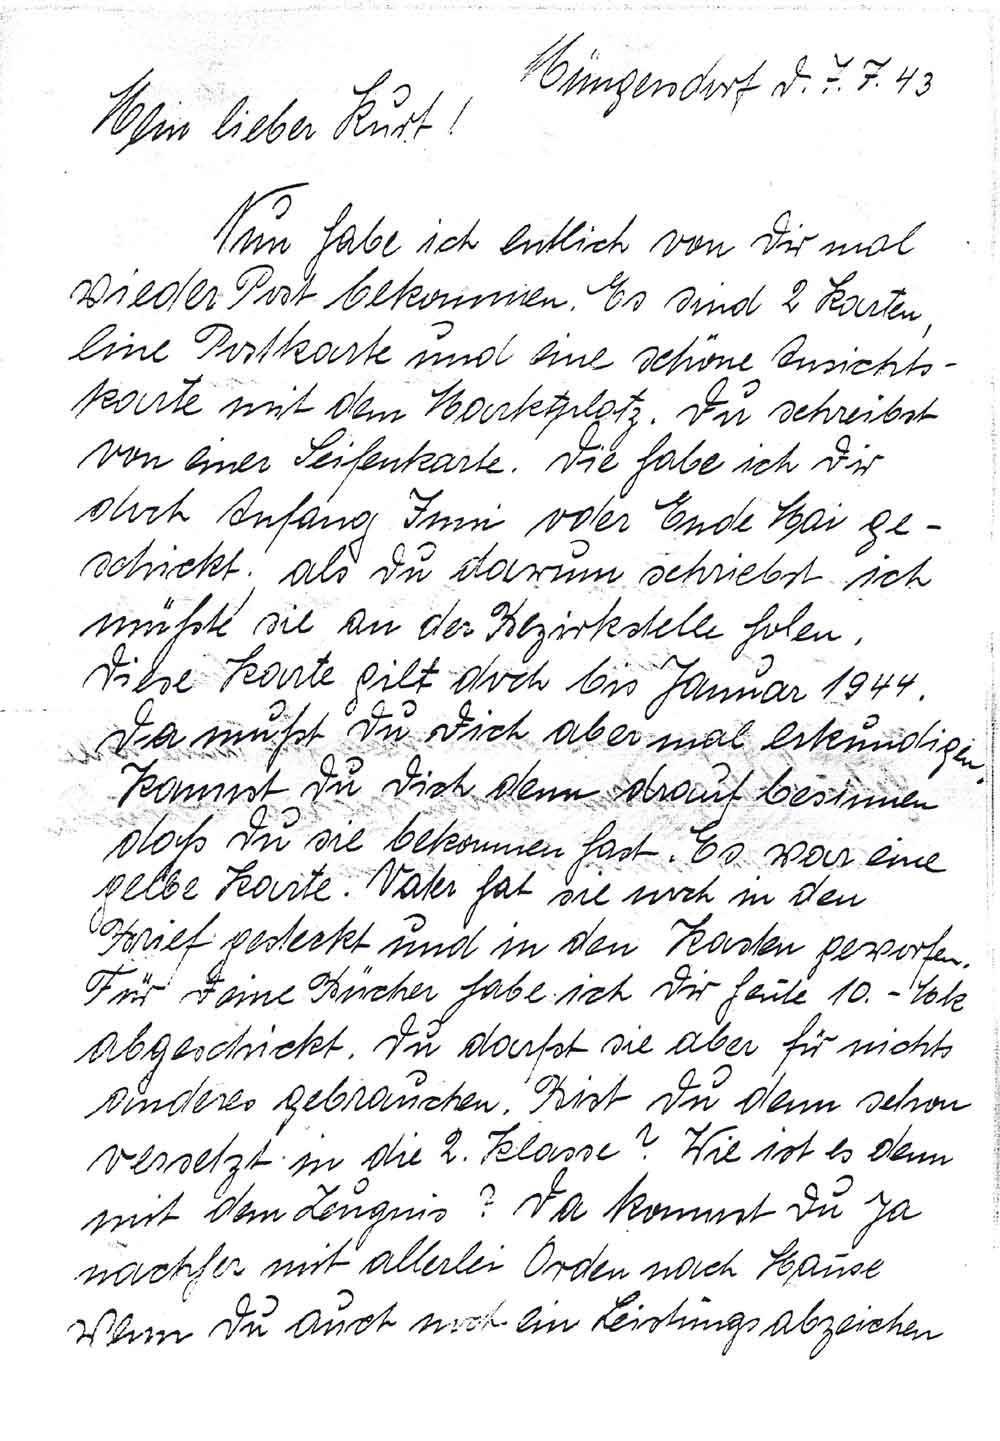 Müngersdorf d. 7.7.43
Mein lieber Kurt!
Nun habe ich entlich von Dir mal
wieder Post bekommen. Es sind 2 Karten,
eine Postkarte und eine schöne Ansichts-
karte mit dem Marktplatz. Du schreibst
von einer Seifenkarte. Die habe ich Dir
doch Anfang Juni oder Ende Mai ge-
schickt, als Du darum schriebst ich
müßte sie an der Bezirkstelle holen.
Diese Karte gilt doch bis Januar 1944.
Da mußt Du Dich aber mal erkundigen.
Kannst Du Dich denn drauf besinnen
daß Du sie bekommen hast. Es war eine
gelbe Karte. Vater hat sie noch in den
Brief gesteckt und in den Kasten geworfen.
Für Deine Bücher habe ich Dir heute 10.- Mk
abgeschickt. Du darfst sie aber für nichts
anderes gebrauchen. Bist Du denn schon
versetzt in die 2. Klasse? Wie ist es denn
mit dem Zeugnis? Da kommst Du ja
nachher mit allerlei Orden nach Hause
wenn Du auch noch ein Leistungsabzeichen